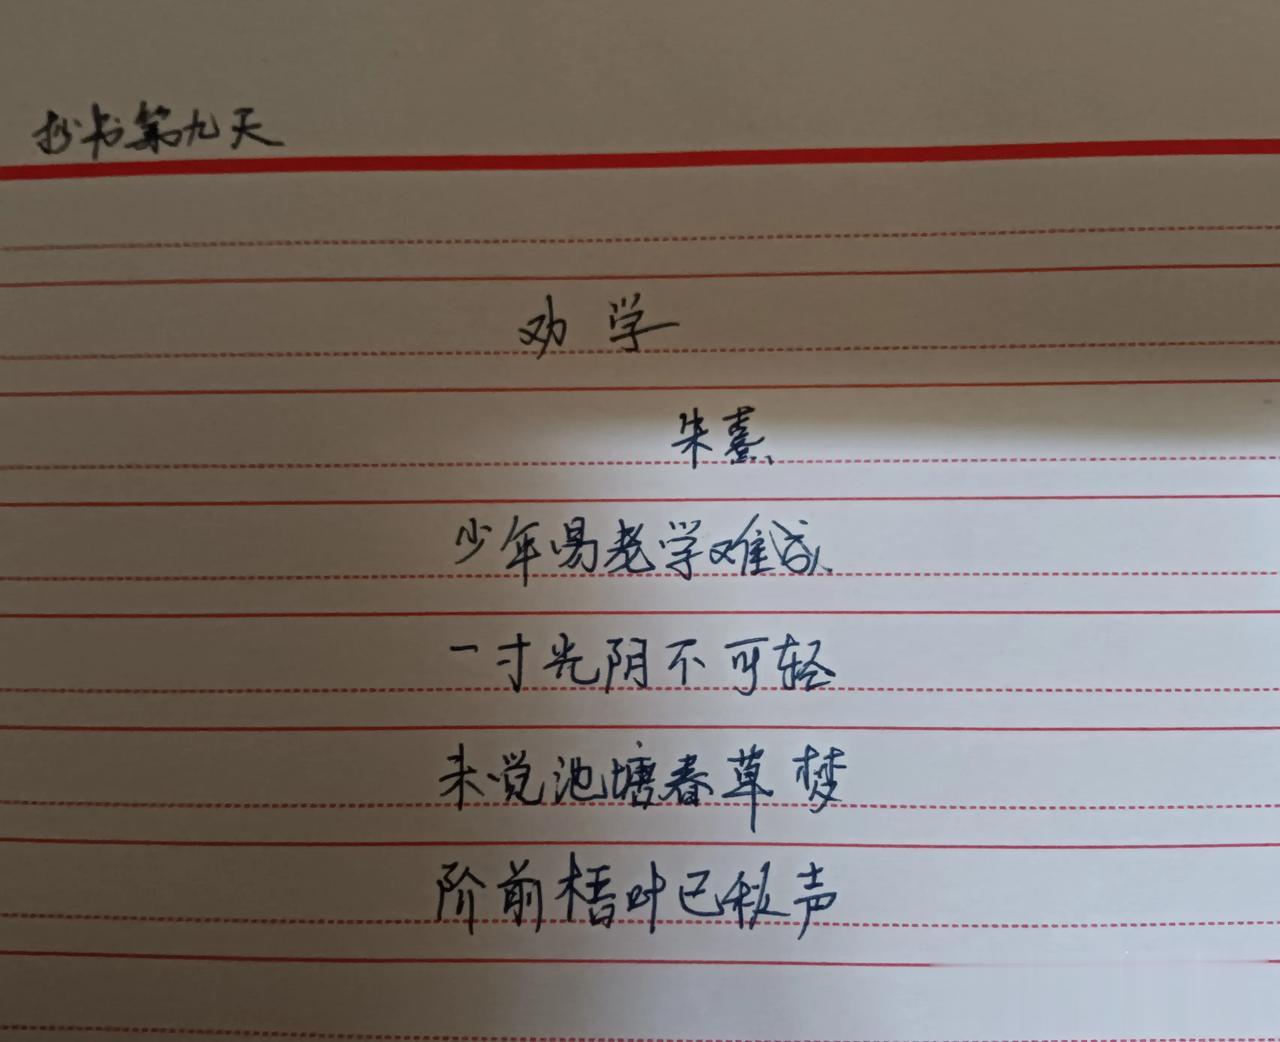 抄书第九天
劝学
朱熹
少年易老学难成
一寸光阴不可轻
未觉池塘春草梦
阶前梧叶已秋声